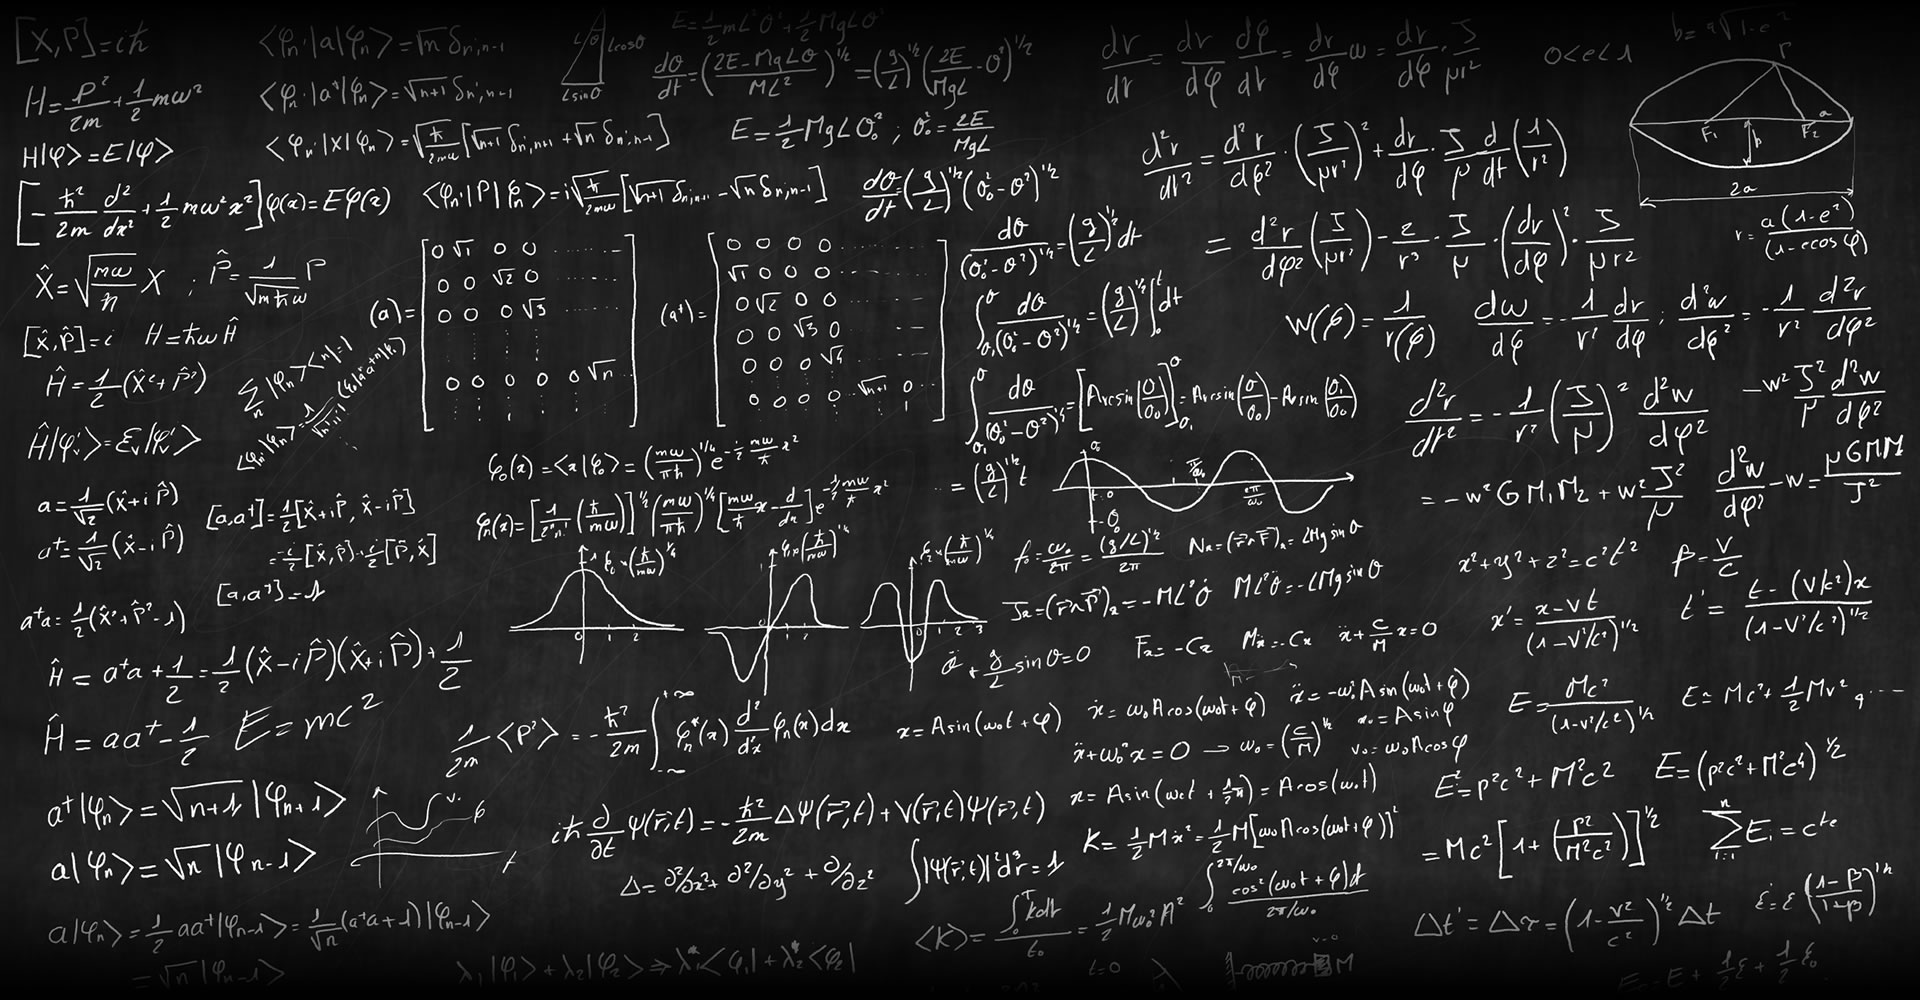 [X,P]=iħ
H=P²/2m+1/2 mω²
H|φ>=E|φ>
[-ħ²/2m d²/dx²+1/2 mω²x²]φ(x)=Eφ(x)
X̂=√(mω/ħ) X ; P̂=1/√(mħω) P
[x̂,P̂]=i H=ħω Ĥ
Ĥ=1/2(x̂²+P̂²)
Ĥ|φ'ᵥ>=Ɛᵥ|φ'ᵥ>
a=1/√2(x̂+iP̂)
a⁺=1/√2(x̂-iP̂)
[a,a⁺]=1/2[x̂+iP̂, x̂-iP̂]
=-i/2[x̂,P̂]+i/2[P̂,x̂]
[a,a⁺]=1
a⁺a=1/2(x̂²+P̂²-1)
Ĥ=a⁺a+1/2=1/2(x̂-iP̂)(x̂+iP̂)+1/2
Ĥ=aa⁺-1/2
E=mc²
a⁺|φn>=√(n+1)|φn+1>
a|φn>=√n|φn-1>
a|φn>=1/2 aa⁺|φn-1>=1/√n(a⁺a+1)|φn-1>
=√n|φn-1>
<φn'|a|φn>=√n δn',n-1
<φn'|a⁺|φn>=√(n+1) δn',n+1
<φn'|X|φn>=√(ħ/2mω)[√(n+1) δn',n+1+√n δn',n-1]
<φn'|P|φn>=i√(ħ/2mω)[√(n+1) δn',n+1-√n δn',n-1]
(a)=
0 √1 0 0
0 0 √2 0
0 0 0 √3
0 0 0 0 0 √n
(a⁺)=
0 0 0 0
√1 0 0 0
0 √2 0 0
0 0 √3 0
0 0 0 √4
0 0 0 0 √(n+1) 0
Σn |φn><n|=1
φ₀(x)=<x|φ₀>=(mω/πħ)^1/4 e^(-1/2 mω/ħ x²)
φn(x)=[1/2ⁿn!(ħ/mω)]^1/2(mω/πħ)^1/4[mω/ħ x-d/dx]e^(-1/2 mω/ħ x²)
0 1 2
0 1 2
0 1 2 3
1/2m<P²>=-ħ²/2m∫φn*(x) d²/d²x φn(x)dx
+∞
-∞
iħ ∂/∂t Ψ(r,t)=-ħ²/2m ΔΨ(r,t)+V(r,t)Ψ(r,t)
Δ=∂²/∂x²+∂²/∂y²+∂/∂z²
∫|Ψ(r,t)|²d³r=1
λ₁|φ₁>+λ₂|φ₂>⇒λ₁*<φ₁|+λ₂*<φ₂|
Lcosθ
Lsinθ
E=1/2 mL²θ̇²+1/2 MgLθ²
dθ/dt=(2E-MgLθ/ML²)^1/2=(g/L)^1/2(2E/MgL-θ²)^1/2
E=1/2 MgLθ₀²; θ₀²=2E/MgL
dθ/dt=(g/L)^1/2(θ₀²-θ²)^1/2
dθ/(θ₀²-θ²)^1/2=(g/L)^1/2 dt
∫dθ/(θ₀²-θ²)^1/2=(g/L)^1/2∫dt
∫dθ/(θ₀²-θ²)^1/2=[Arcsin(θ/θ₀)]=Arcsin(θ/θ₀)-Arsin(θ₁/θ₀)
=(g/L)^1/2 t
f₀=ω₀/2π=(g/L)^1/2/2π
Nx=(r∧F)x=LMg sin θ
Jx=(r∧P)x=-ML²θ̇ ML²θ̈=-LMg sin θ
θ̈+g/L sin θ=0
Fx=-Cx Mẍ=-Cx ẍ+C/M x=0
x=Asin(ω₀t+φ)
ẋ=ω₀Acos(ω₀t+φ) ẍ=-ω₀²Asin(ω₀t+φ)
ẍ+ω₀²x=0 → ω₀=(C/M)^1/2
x₀=Asinφ
v₀=ω₀Acosφ
x=Asin(ω₀t+1/2π)=Acos(ω₀t)
K=1/2 Mẋ²=1/2 M[ω₀Acos(ω₀t+φ)]²
<K>=∫Kdt/t₀=1/2 Mω₀²A² ∫cos²(ω₀t+φ)dt/2π/ω₀
t=0
v=0
M
dr/dt=dr/dφ dφ/dt=dr/dφ ω=dr/dφ·J/μr²
0<e<1
b=a√(1-e²)
r
F₁ F₂ a
b
2a
r=a(1-e²)/(1-ecosφ)
d²r/dt²=d²r/dφ²·(J/μr²)²+dr/dφ·J/μ d/dt(1/r²)
=d²r/dφ²(J/μr²)-2/r³·J/μ·(dr/dφ)²·J/μr²
W(φ)=1/r(φ) dω/dφ=-1/r² dr/dφ; d²w/dφ²=-1/r² d²r/dφ²
d²r/dt²=-1/r²(J/μ)² d²w/dφ² -w²J²/μ d²w/dφ²
=-w²GM₁M₂+w²J²/μ d²w/dφ²-w=μGMM/J²
x²+y²+z²=c²t² β=V/c
x'=x-vt/(1-V²/c²)^1/2 t'=t-(V/c²)x/(1-V²/c²)^1/2
E=Mc²/(1-v²/c²)^1/2 E=Mc²+1/2 Mv²
E²=p²c²+M²c² E=(p²c²+M²c⁴)^1/2
=Mc²[1+(P²/M²c²)]^1/2
Σ Ei=cᵗᵉ
Δt'=Δτ=(1-v²/c²)^1/2 Δt
(1-β/1+β)^1/2